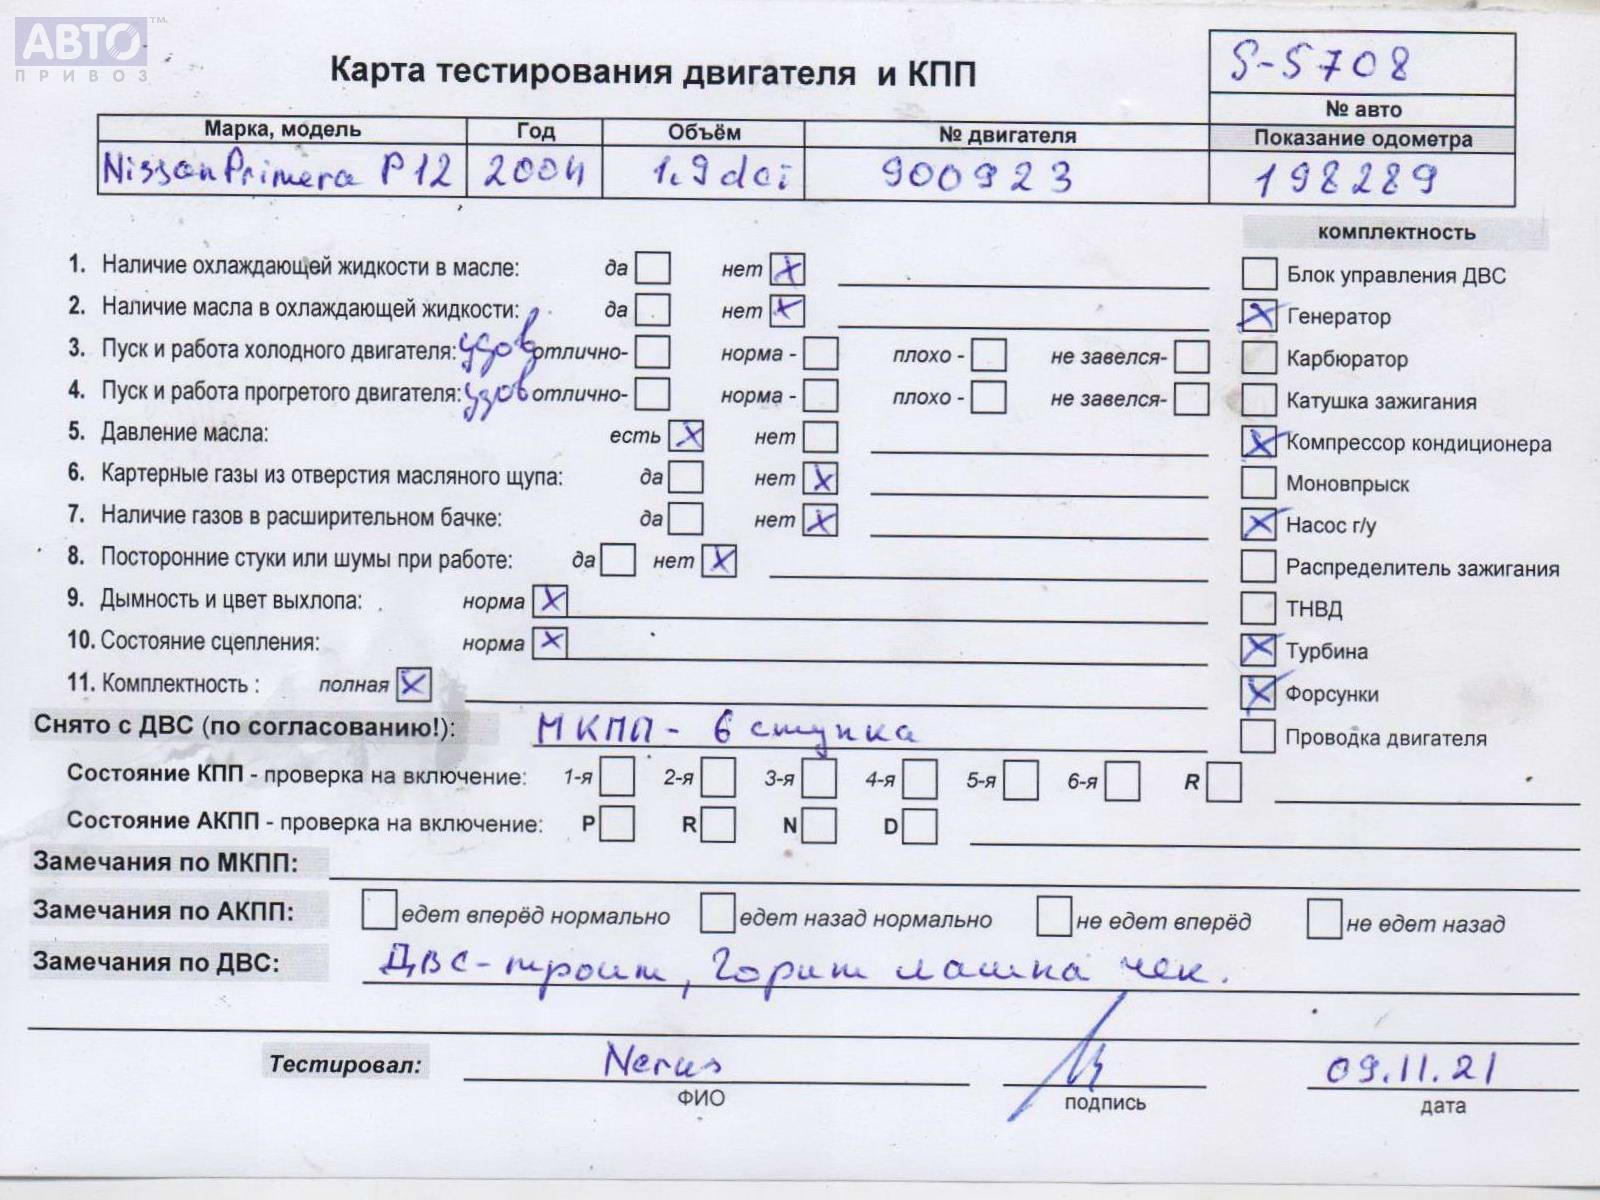 АВТО TM
ПРИВОЗ
Карта тестирования двигателя и КПП
S-5708
№ авто
Марка, модель Год Объём № двигателя Показание одометра
Nissan Primera P12 2004 1.9 dci 900923 198289
комплектность
1. Наличие охлаждающей жидкости в масле: да нет X Блок управления ДВС
2. Наличие масла в охлаждающей жидкости: да нет X X Генератор
3. Пуск и работа холодного двигателя: удов отлично- норма - плохо - не завелся- Карбюратор
4. Пуск и работа прогретого двигателя: удов отлично- норма - плохо - не завелся- Катушка зажигания
5. Давление масла: есть X нет X Компрессор кондиционера
6. Картерные газы из отверстия масляного щупа: да нет X Моновпрыск
7. Наличие газов в расширительном бачке: да нет X X Насос г/у
8. Посторонние стуки или шумы при работе: да нет X Распределитель зажигания
9. Дымность и цвет выхлопа: норма X ТНВД
10. Состояние сцепления: норма X X Турбина
11. Комплектность : полная X X Форсунки
Снято с ДВС (по согласованию!): МКПП - 6 ступка Проводка двигателя
Состояние КПП - проверка на включение: 1-я 2-я 3-я 4-я 5-я 6-я R
Состояние АКПП - проверка на включение: P R N D
Замечания по МКПП:
Замечания по АКПП: едет вперёд нормально едет назад нормально не едет вперёд не едет назад
Замечания по ДВС: ДВС-троит, Горит лампа чек.
Тестировал: 09.11.21
ФИО подпись дата